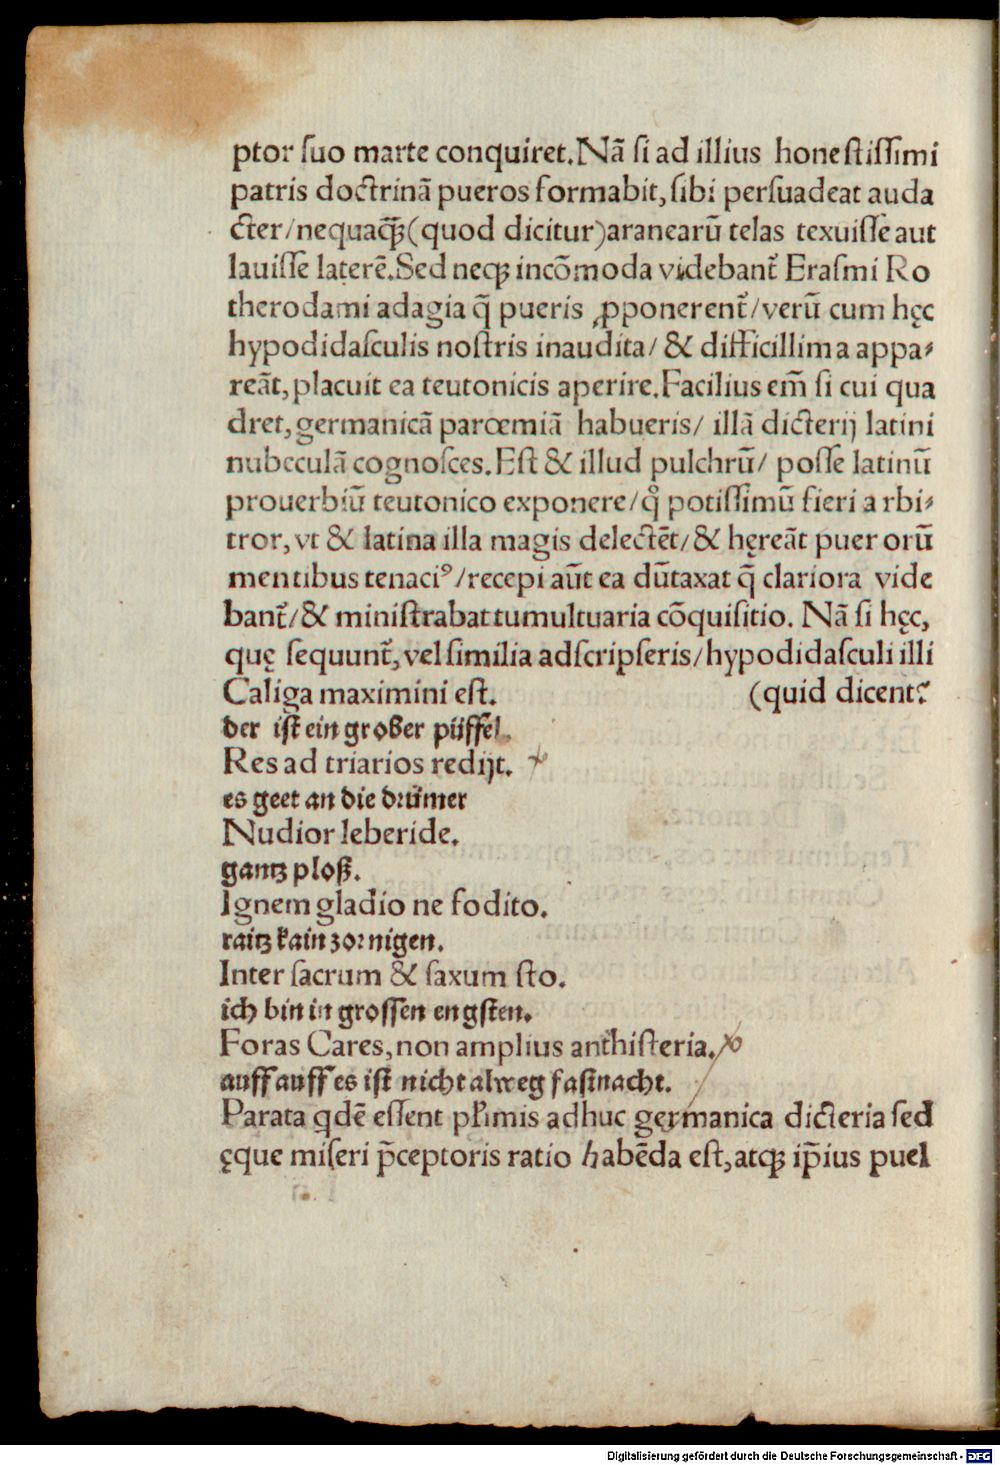 ptor ſuo marte conquiret. Nā ſi ad illius honeſtiſſimi
patris doctrinā pueros formabit, ſibi perſuadeat auda
cter/nequaꝗ̃(quod dicitur)aranearū telas texuiſſe aut
lauiſſe laterē. Sed neqꝫ incōmoda videbant᷑ Eraſmi Ro
therodami adagia q̄ pueris ꝓponerent᷑/verū cum hęc
hypodidaſculis noſtris inaudita/ & difficillima appa⸗
reāt, placuit ea teutonicis aperire. Facilius em̄ ſi cui qua
dret, germanicā parœmiā habueris/ illā dicterij latini
nubeculā cognoſces. Eſt & illud pulchrū/ poſſe latinū
prouerbiū teutonico exponere/qͦ potiſſimū fieri arbi⸗
tror, vt & latina illa magis delectēt/& hęreāt puerorū
mentibus tenaciꝰ/recepi aūt ea dūtaxat q̄ clariora vide
bant᷑/& miniſtrabat tumultuaria cōquiſitio. Nā ſi hęc,
quę ſequunt᷑, vel ſimilia adſcripſeris/hypodidaſculi illi
Caliga maximini eſt. (quid dicent?
der iſt ein groſſer püffel.
Res ad triarios redijt.
es geet an die drümer
Nudior leberide.
gantz ploß.
Ignem gladio ne fodito.
raitz kain zornigen.
Inter ſacrum & ſaxum ſto.
ich bin in groſſen engſten.
Foras Cares, non amplius anthiſteria.
auff auff es iſt nicht alweg faſtnacht.
Parata qdē eſſent pl̃imis adhuc germanica dicteria ſed
ęque miſeri p̄ceptoris ratio habēda eſt, atqꝫ ip̄ius puel
Digitalisierung gefördert durch die Deutsche Forschungsgemeinschaft - DFG